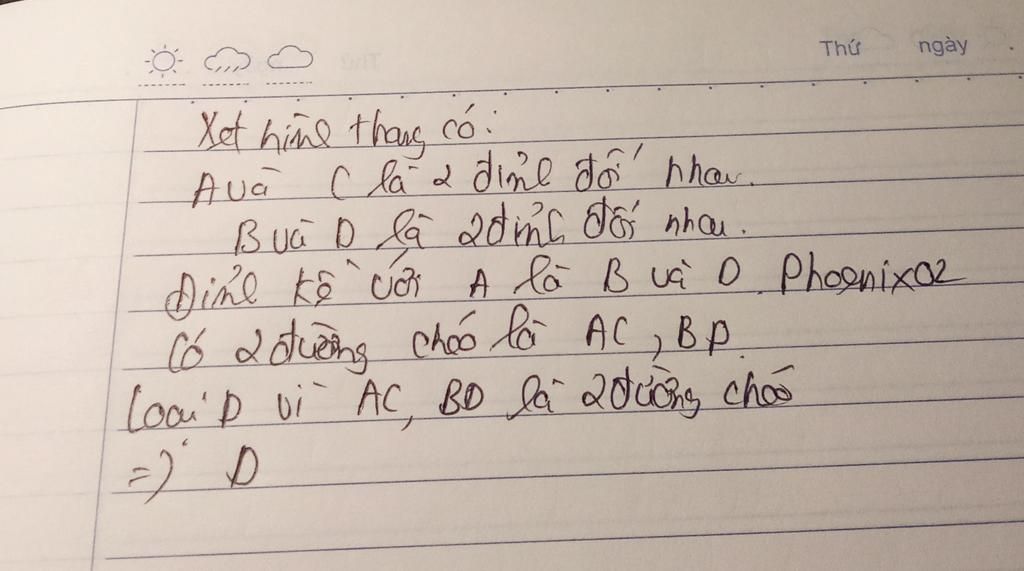 Thứ ngày
Xét hình thang có:
A và C là 2 đỉnh đối nhau.
B và D là 2 đỉnh đối nhau.
Đỉnh kề với A là B và D. Phoenix02
Có 2 đường chéo là AC, BD.
Loại D vì AC, BD là 2 đường chéo
=) D